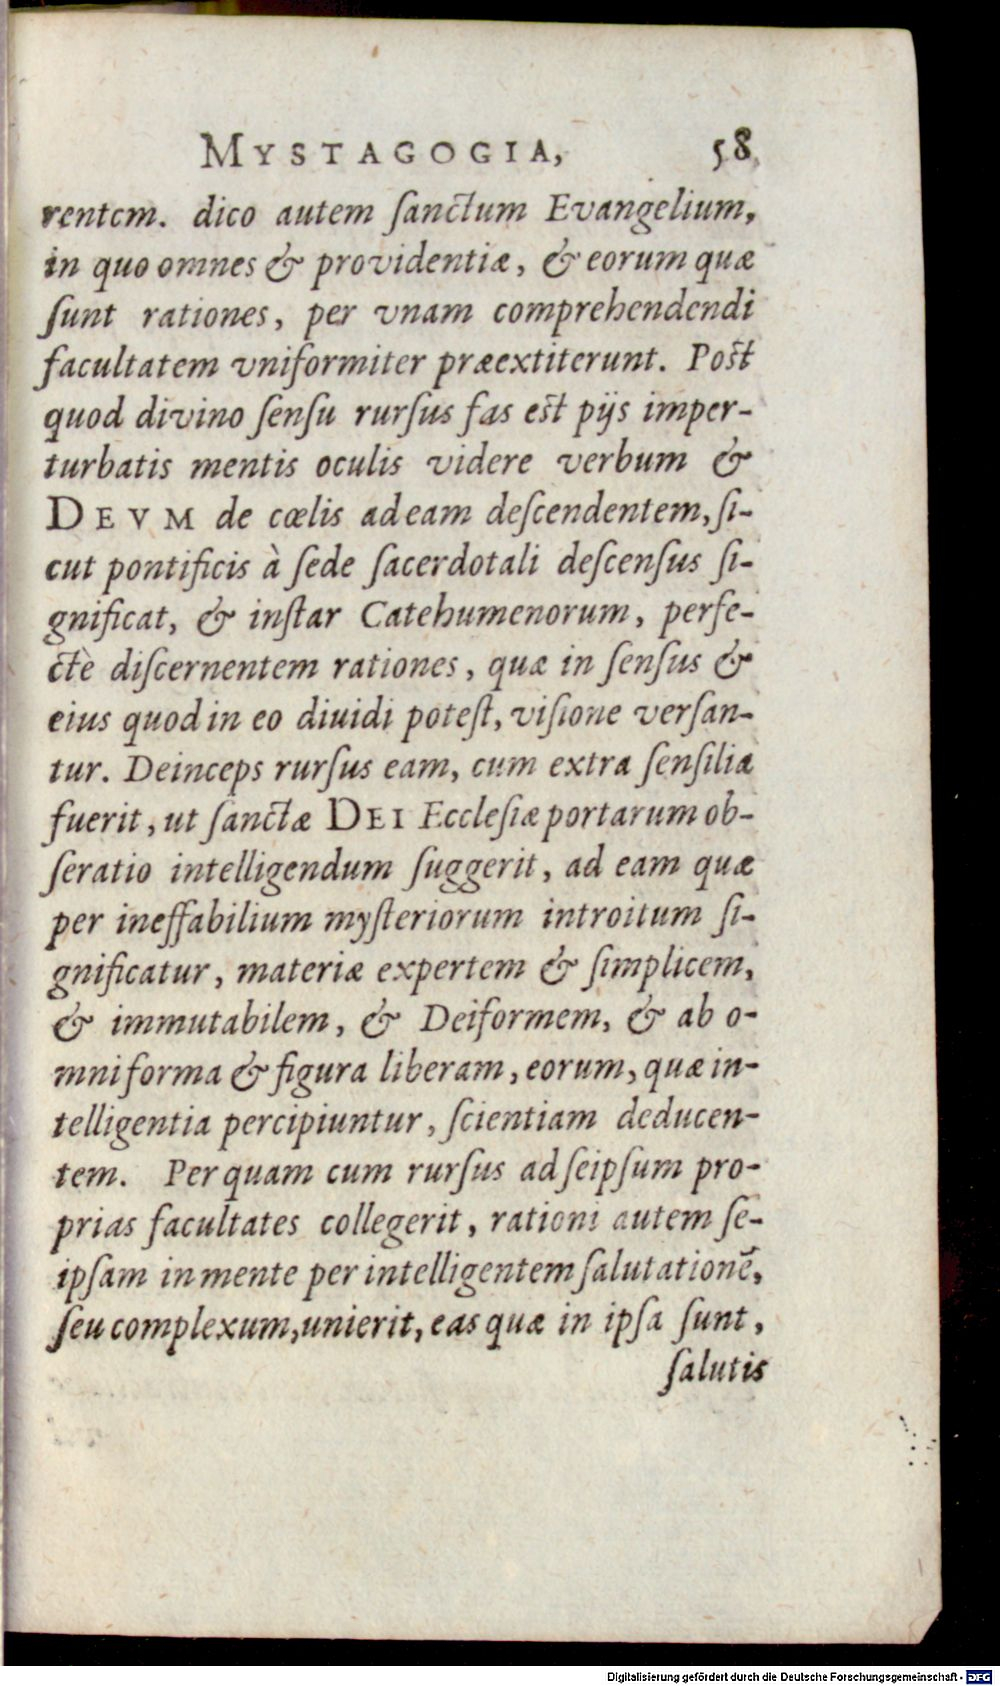 MYSTAGOGIA, 58
rentem. dico autem ſanctum Evangelium,
in quo omnes & providentiæ, & eorum quæ
ſunt rationes, per vnam comprehendendi
facultatem vniformiter præextiterunt. Post
quod divino ſenſu rurſus fas est pijs imper-
turbatis mentis oculis videre verbum &
DEVM de cœlis ad eam deſcendentem, ſi-
cut pontificis à ſede ſacerdotali deſcenſus ſi-
gnificat, & inſtar Catehumenorum, perfe-
ctè diſcernentem rationes, quæ in ſenſus &
eius quod in eo diuidi poteſt, viſione verſan-
tur. Deinceps rurſus eam, cum extra ſenſilia
fuerit, ut ſanctæ DEI Eccleſiæ portarum ob-
ſeratio intelligendum ſuggerit, ad eam quæ
per ineffabilium myſteriorum introitum ſi-
gnificatur, materiæ expertem & ſimplicem,
& immutabilem, & Deiformem, & ab o-
mni forma & figura liberam, eorum, quæ in-
telligentia percipiuntur, ſcientiam deducen-
tem. Per quam cum rurſus ad ſeipſum pro-
prias facultates collegerit, rationi autem ſe-
ipſam in mente per intelligentem ſalutationē,
ſeu complexum, unierit, eas quæ in ipſa ſunt,
ſalutis
Digitalisierung gefördert durch die Deutsche Forschungsgemeinschaft - DFG